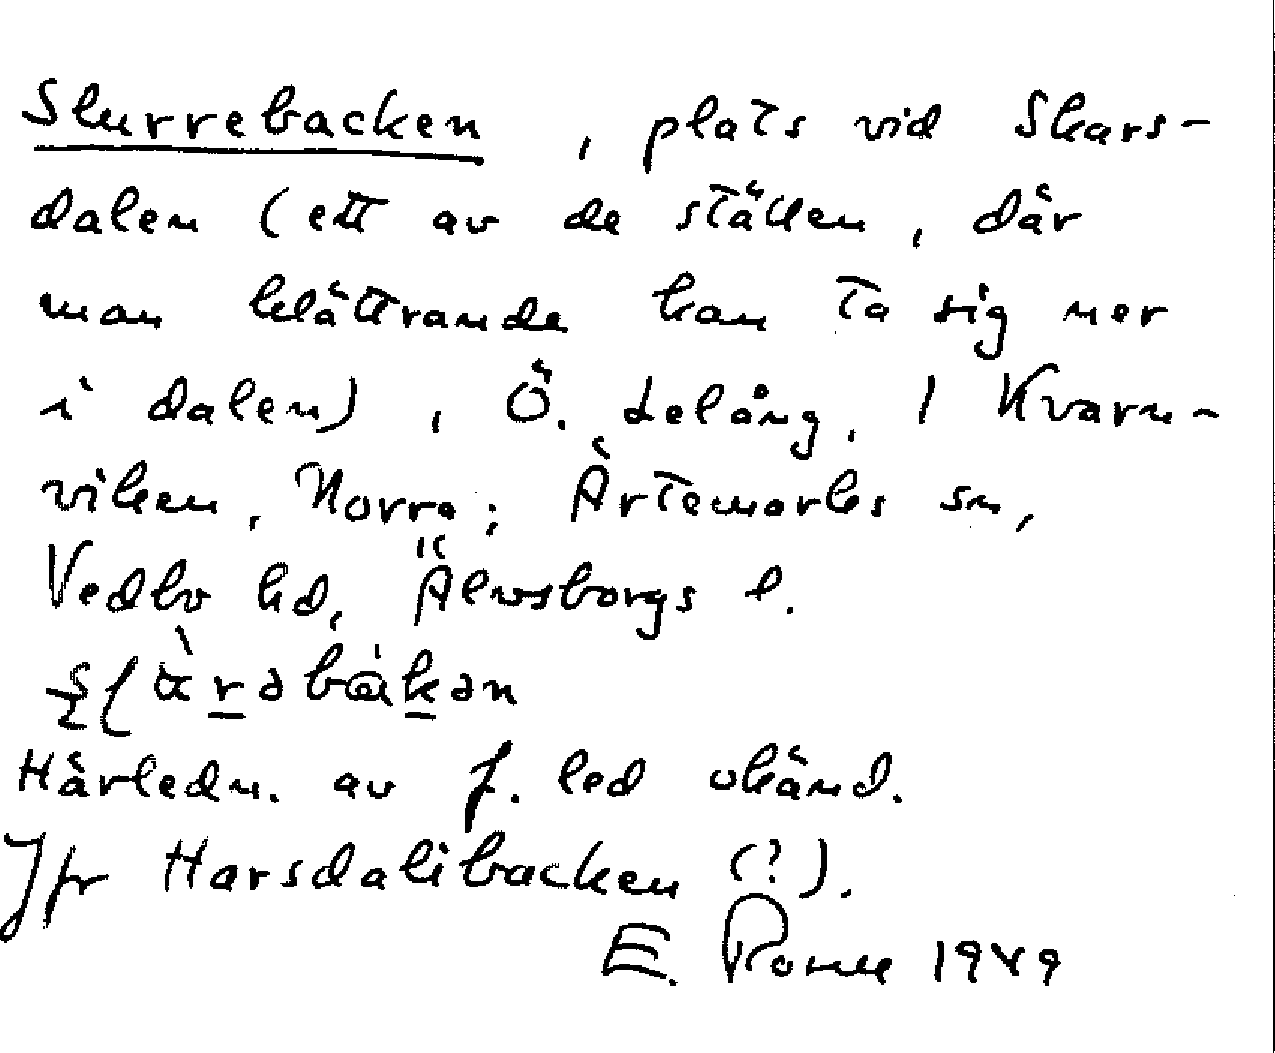 Slurrebacken, plats vid Skars-
dalen (ett av de ställen, där
man klättrande kan ta sig ner
i dalen), Ö. Lelång, 1 Kvarn-
viken, Norra; Ärtemarks sn,
Vedbo hd, Älvsborgs l.
Härledn. av f. led okänd.
Jfr Harsdalibacken (?).
E. 1949